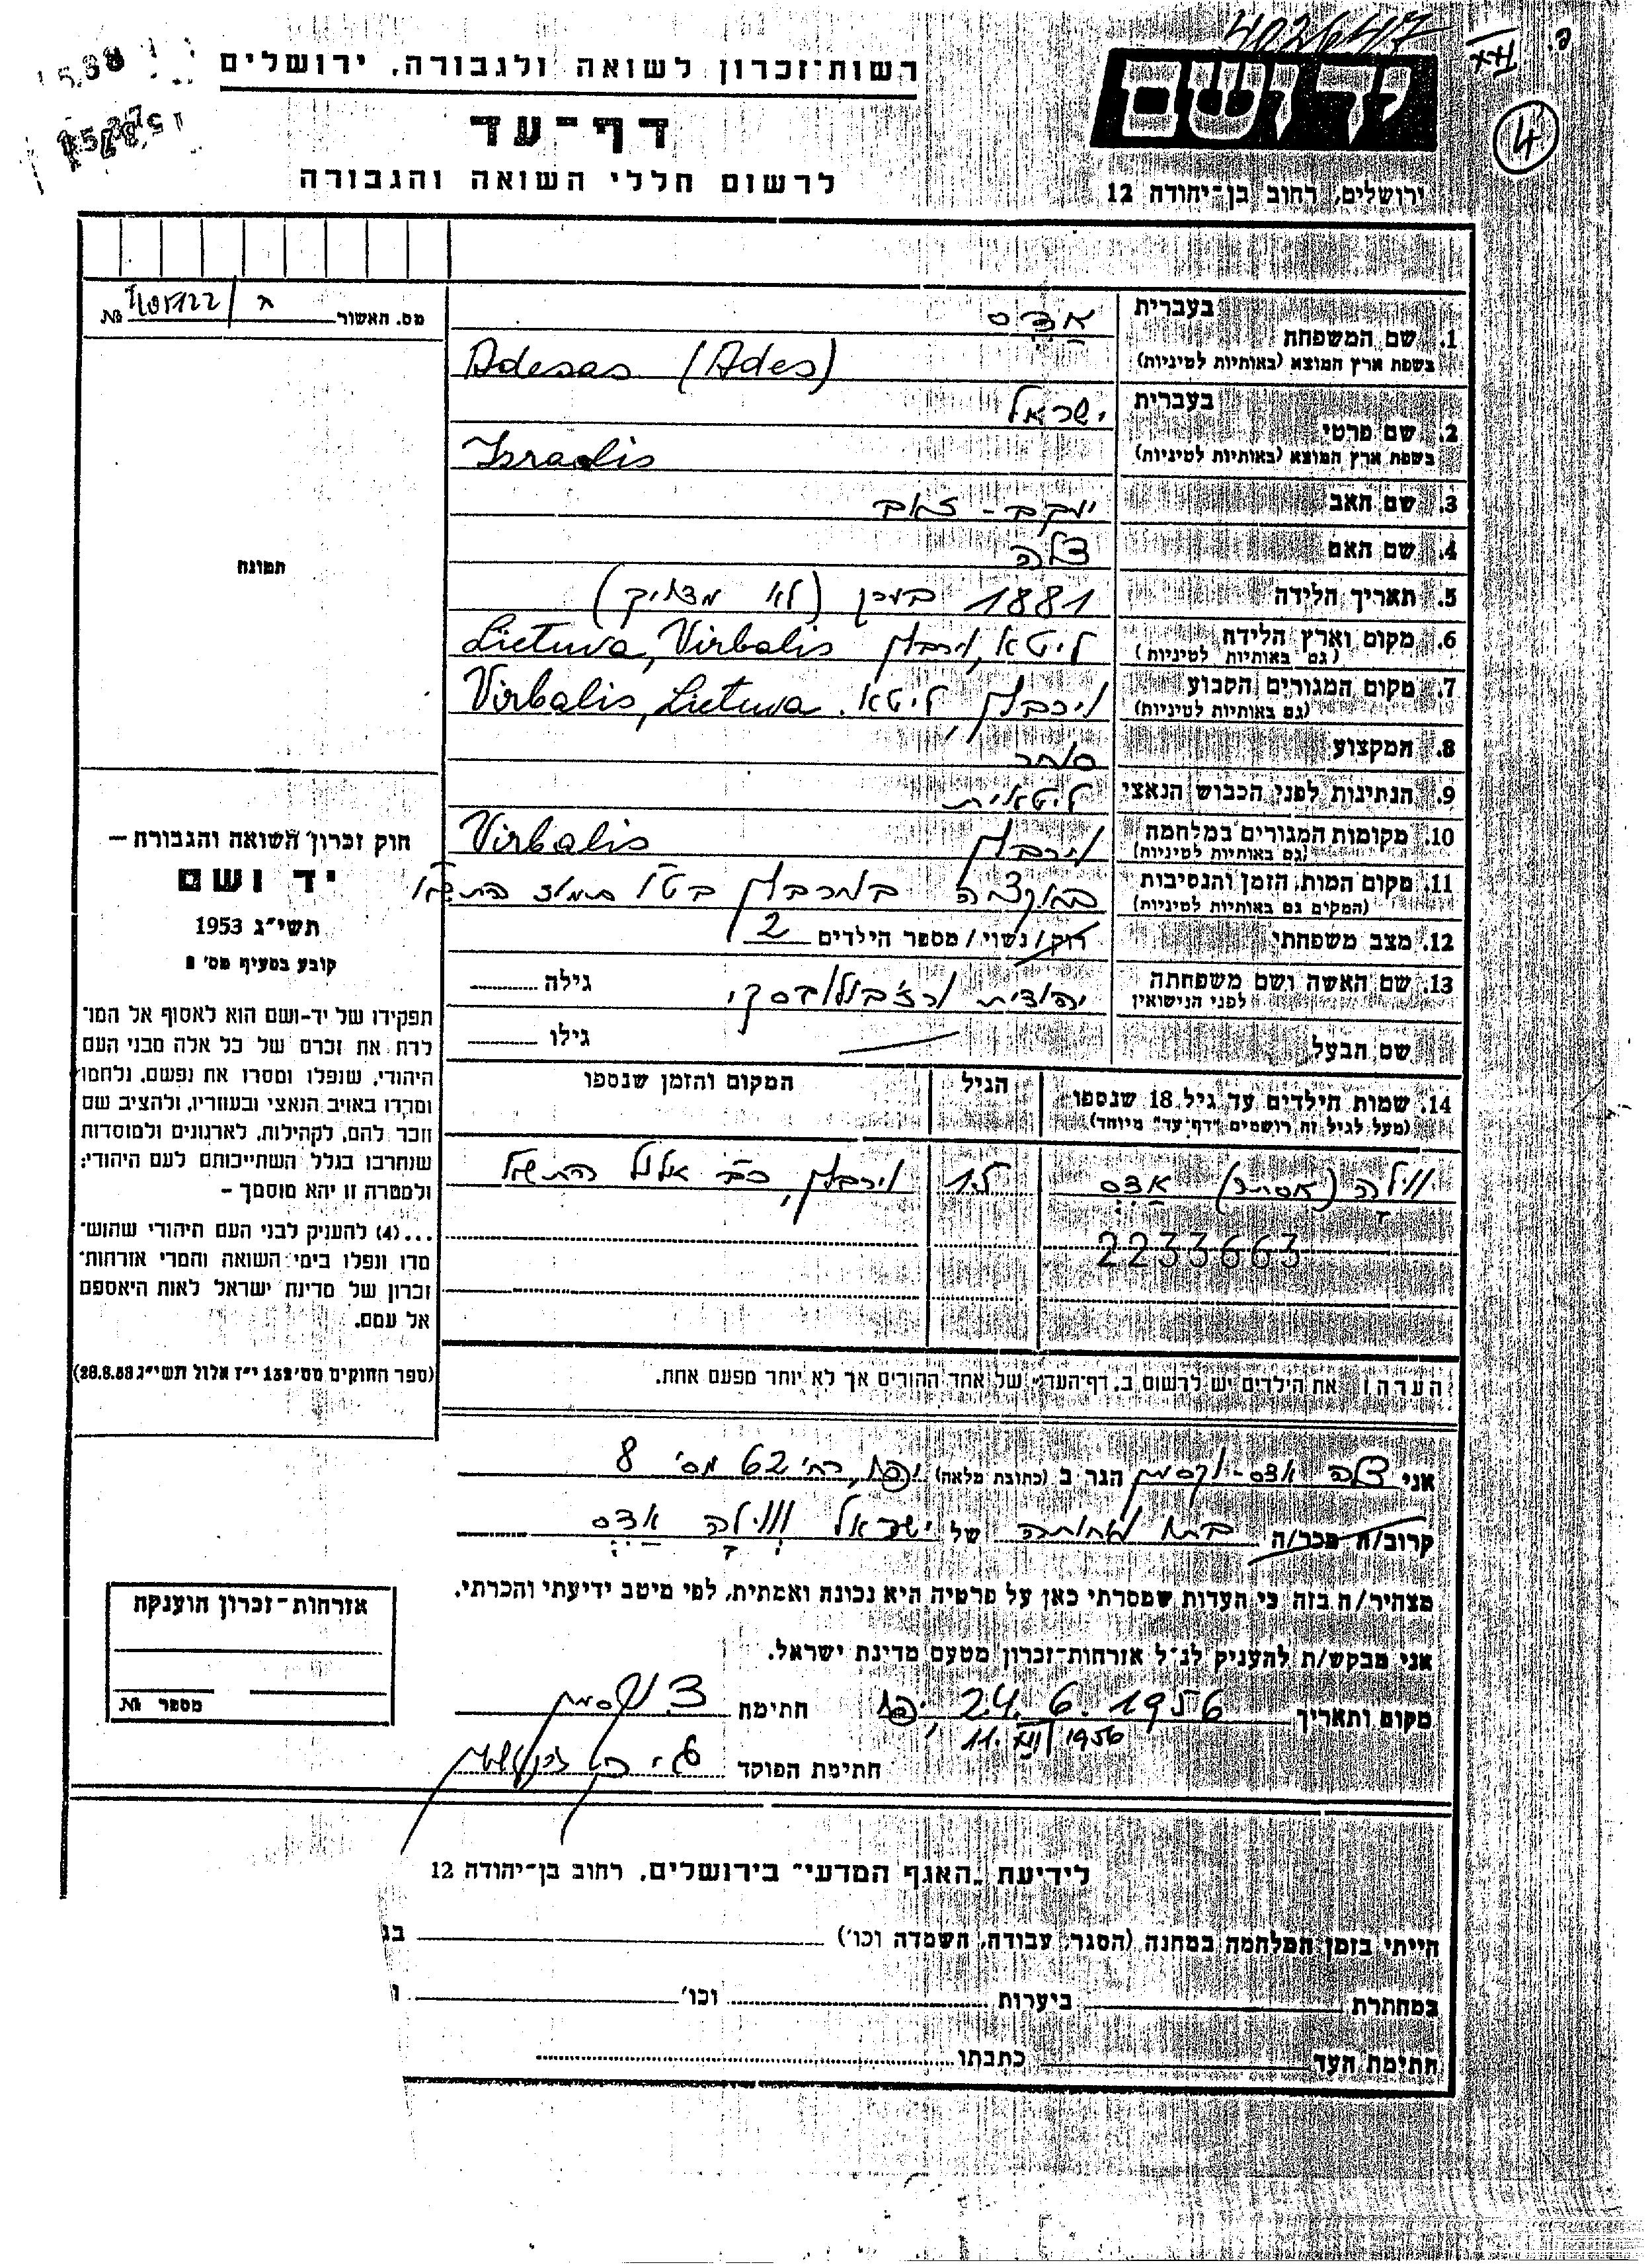 402647
4
רשות־זכרון לשואה ולגבורה, ירושלים
דף־עד
לרשום חללי השואה והגבורה
יד ושם
ירושלים, רחוב בן־יהודה 12
מס. תאשור №
1. שם המשפחה
בעברית
אָדֶס
בשפת ארץ המוצא (באותיות לטיניות)
Adesas (Ades)
2. שם פרטי
בעברית
ישראל
בשפת ארץ המוצא (באותיות לטיניות)
Israelis
3. שם האב יעקב - זאב
4. שם האם צלה
5. תאריך הלידה 1881 בערך (לא מדויק)
6. מקום וארץ הלידה
(גם באותיות לטיניות)
ליטא, וירבלן Lietuva, Virbalis
7. מקום המגורים הקבוע
(גם באותיות לטיניות)
וירבלן, ליטא. Virbalis, Lietuva
8. המקצוע סוחר
9. הנתינות לפני הכבוש הנאצי ליטאית
10. מקומות המגורים במלחמה
(גם באותיות לטיניות)
וירבלן Virbalis
11. מקום המות, הזמן והנסיבות
(המקום גם באותיות לטיניות)
באקציה בוירבלן בט"ו תמוז התש"א
12. מצב משפחתי רוק / נשוי / מספר הילדים 2
13. שם האשה ושם משפחתה
לפני הנישואין
יהודית
גילה
שם הבעל גילו
14. שמות הילדים עד גיל 18 שנספו
(מעל לגיל זה רושמים "דף־עד" מיוחד)
הגיל
המקום והזמן שנספו
(אסתר) אָדֶס 15 וירבלן, כ"ב אלול התש"א
2233663
הערה! את הילדים יש לרשום ב„דף־העד״ של אחד ההורים אך לא יותר מפעם אחת.
תמונה
חוק זכרון השואה והגבורה —
יד ושם
תשי״ג 1953
קובע בסעיף מס׳ 2
תפקידו של יד־ושם הוא לאסוף אל המו־
לדת את זכרם של כל אלה מבני העם
היהודי, שנפלו ומסרו את נפשם, נלחמו
ומרדו באויב הנאצי ובעוזריו, ולהציב שם
וזכר להם, לקהילות, לארגונים ולמוסדות
שנחרבו בגלל השתייכותם לעם היהודי;
ולמטרה זו יהא מוסמך —
...(4) להעניק לבני העם היהודי שהוש־
מדו ונפלו בימי השואה והמרי אזרחות־
זכרון של מדינת ישראל לאות היאספם
אל עמם.
(ספר החוקים מס׳ 132 י״ז אלול תשי״ג 28.8.53)
אני צלה אדס - וקסמן הגר ב (כתובת מלאה) יפו, רח' 62 מס' 8
קרוב/ה מכר/ה בתו ואחותה של ישראל אָדֶס
מצהיר/ה בזה כי העדות שמסרתי כאן על פרטיה היא נכונה ואמתית, לפי מיטב ידיעתי והכרתי.
אני מבקש/ת להעניק לנ״ל אזרחות־זכרון מטעם מדינת ישראל.
מקום ותאריך 24.6.1956, יפו חתימה צ וקסמן
11. VII 1956
חתימת הפוקד
אזרחות־זכרון הוענקה
מספר №
לידיעת „האגף המדעי״ בירושלים, רחוב בן־יהודה 12
הייתי בזמן המלחמה במחנה (הסגר, עבודה, השמדה וכו׳) בג
במחתרת ביערות וכו׳ ו
חתימת העד כתבתו